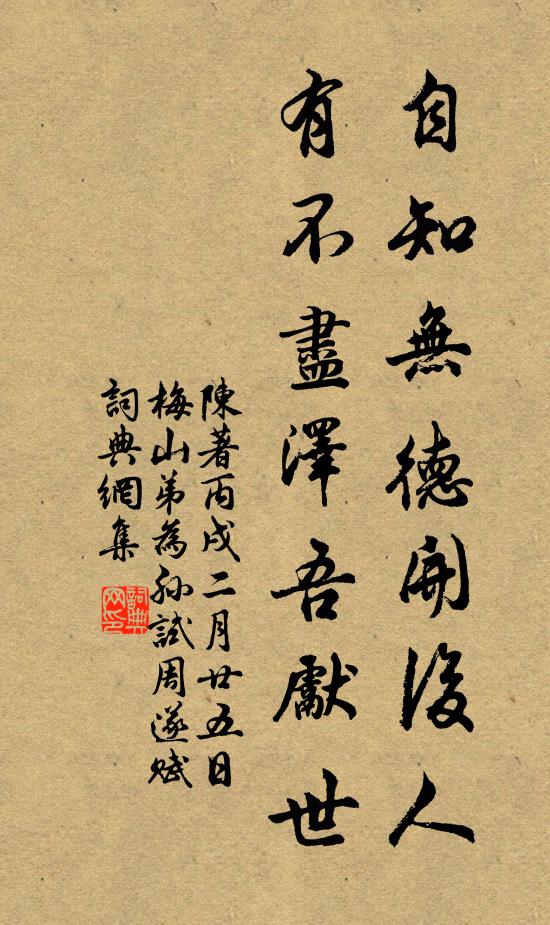 自知無德開後人
有不盡澤吾獻世
陳著丙戌二月廿五日
梅山弟為孫試周遂賦
詞典網集
詞典网印